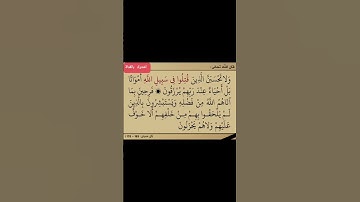 قال الله تعالى:
وَلَا تَحْسَبَنَّ الَّذِينَ قُتِلُوا فِي سَبِيلِ اللَّهِ أَمْوَاتًا
بَلْ أَحْيَاءٌ عِندَ رَبِّهِمْ يُرْزَقُونَ ۝ فَرِحِينَ بِمَا
آتَاهُمُ اللَّهُ مِن فَضْلِهِ وَيَسْتَبْشِرُونَ بِالَّذِينَ
لَمْ يَلْحَقُوا بِهِم مِّنْ خَلْفِهِمْ أَلَّا خَوْفٌ
عَلَيْهِمْ وَلَا هُمْ يَحْزَنُونَ